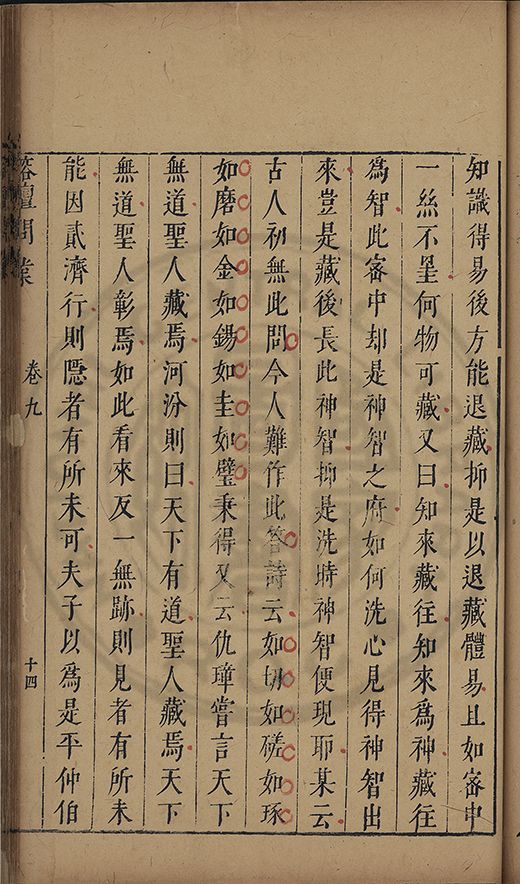 知識得易後方能退藏抑是以退藏體易且如密中
一絲不罣何物可藏又曰知來藏往知來為神藏往
為智此密中却是神智之府如何洗心見得神智出
來豈是藏後長此神智抑是洗時神智便現耶某云
古人初無此問今人難作此答詩云如切如磋如琢
如磨如金如錫如圭如璧秉得又云仇璋嘗言天下
無道聖人藏焉河汾則曰天下有道聖人藏焉天下
無道聖人彰焉如此看來反一無跡則見者有所未
能因貳濟行則隱者有所未可夫子以為是平仲伯
榕壇問業
卷九
十四